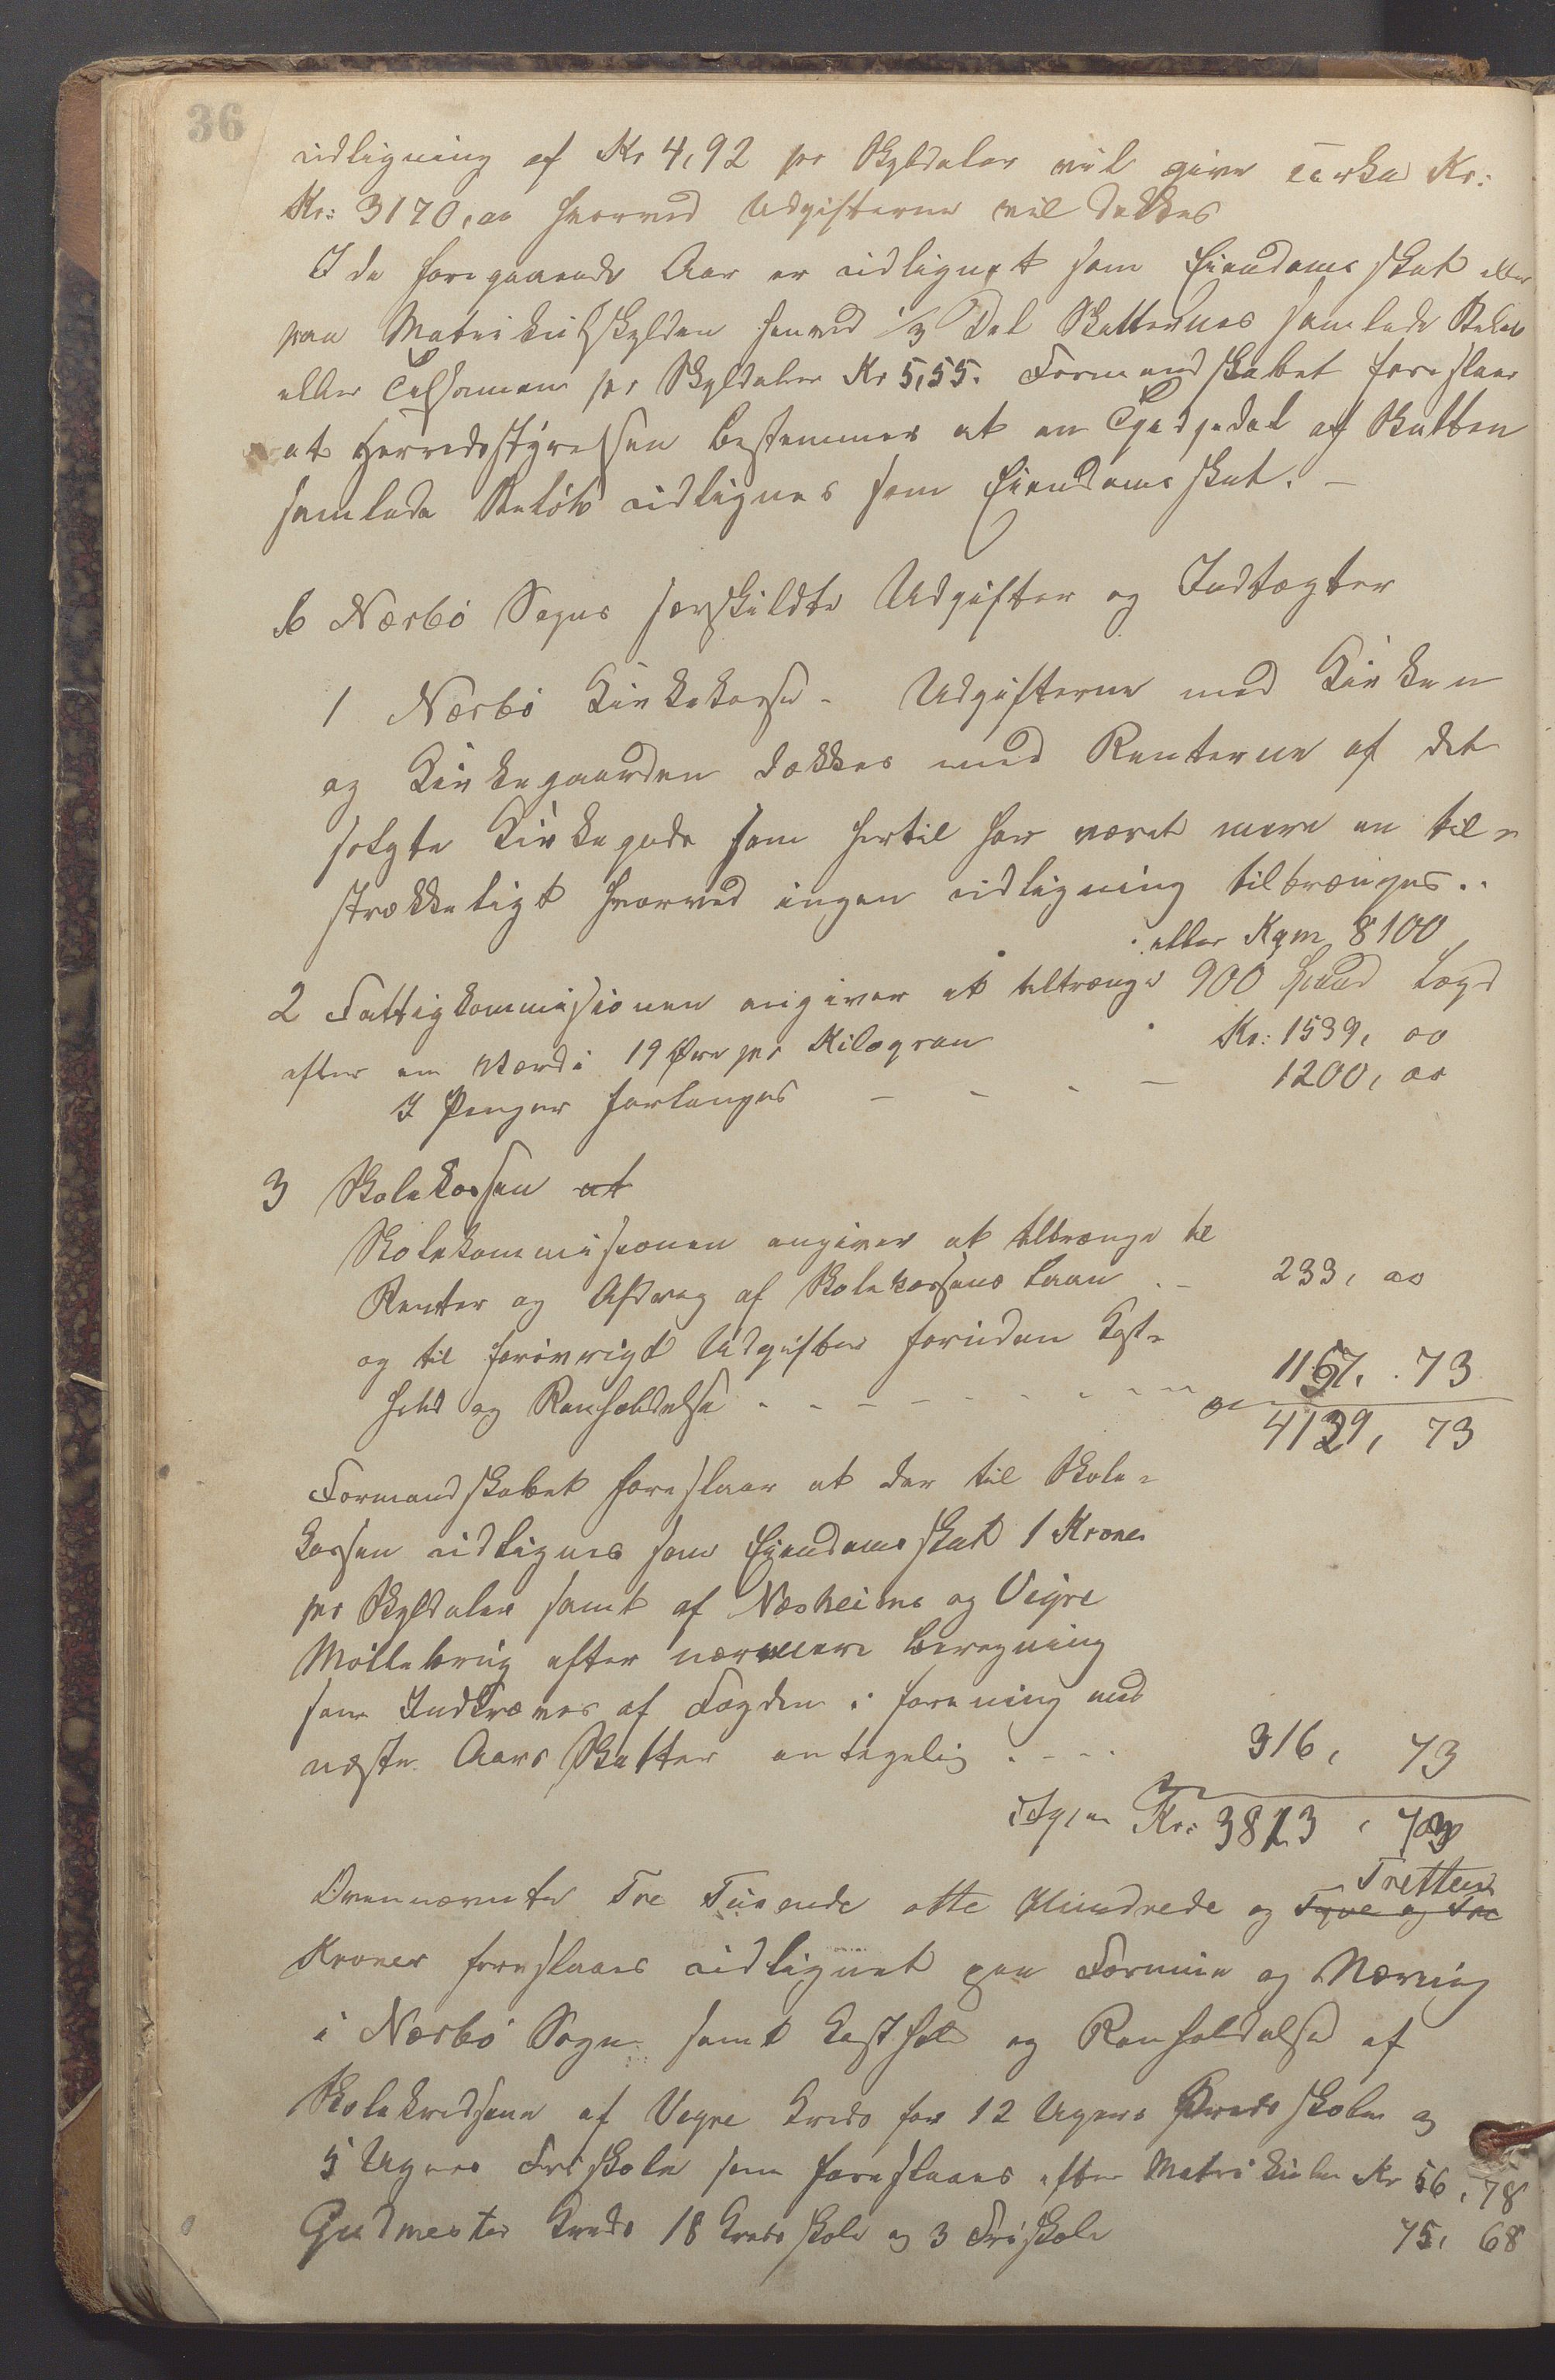 36
udligning af Kr 4,92 pr Skyldaler vil give cirka Kr:
Kr: 3170,00 hvorved Udgifterne vil dækkes
I de foregaaende Aar er udlignet som Eiendomsskat eller
paa Matrikulskylden henved 1/3 Del Skatternes samlede Beløb
eller Tilsammen pr Skyldaler Kr 5,55. Formandskabet foreslaar
at Herredsstyrelsen bestemmer at en Tredjedel af Skatten
samlede Beløb udlignes som Eiendomsskat. –
b Nærbø Sogns særskildte Udgifter og Indtægter
1 Nærbø Kirkekasse - Udgifterne med Kirken
og Kirkegaarden dækkes med Renterne af det
solgte Kirkegods som hertil har været mere en til-
strækkeligt hvorved ingen udligning tiltrænges..
eller Kgm 8100
2 Fattigkommisionen angiver at tiltrænge 900 Lægd
efter en Værdi 19 Øre pr Kilogram Kr: 1539, 00
I Penger forlanges – - - – 1200, 00
3 Skolekassen at
Skolekommisionen angiver at tiltrænge til
Renter og Afdrag af Skolekassens Laan . - 233, 00
og til forøvrigt Udgifter foruden Kost-
hold og Renholdelse . - - - - - - - 1157, . 73
4129, 73
Formandskabet foreslaar at der til Skole-
kassen udlignes som Eiendomsskat 1 Krone
pr Skyldaler samt af Næsheims og Vigre
Møllebrug efter nærmere beregning
som Indkræves af Fogden i forening med
næste Aars Skatter antagelig . - - . 316, 73
igjen Kr: 3813, 00
Tretten
Ovennævnte Tre Tusende otte Hundrede og Tyve og Tre
Kroner foreslaaes udlignet paa Formue og Næring
i Nærbø Sogn samt Kosthold og Renholdelse af
Skolekredsene af Vigre Kreds for 12 Ugers Kredsskole og
5 Ugers Friskole som foreslaaes efter Matrikulen Kr 56,78
Gudmestad Kreds 18 Kredsskole og 3 Friskole 75, 68